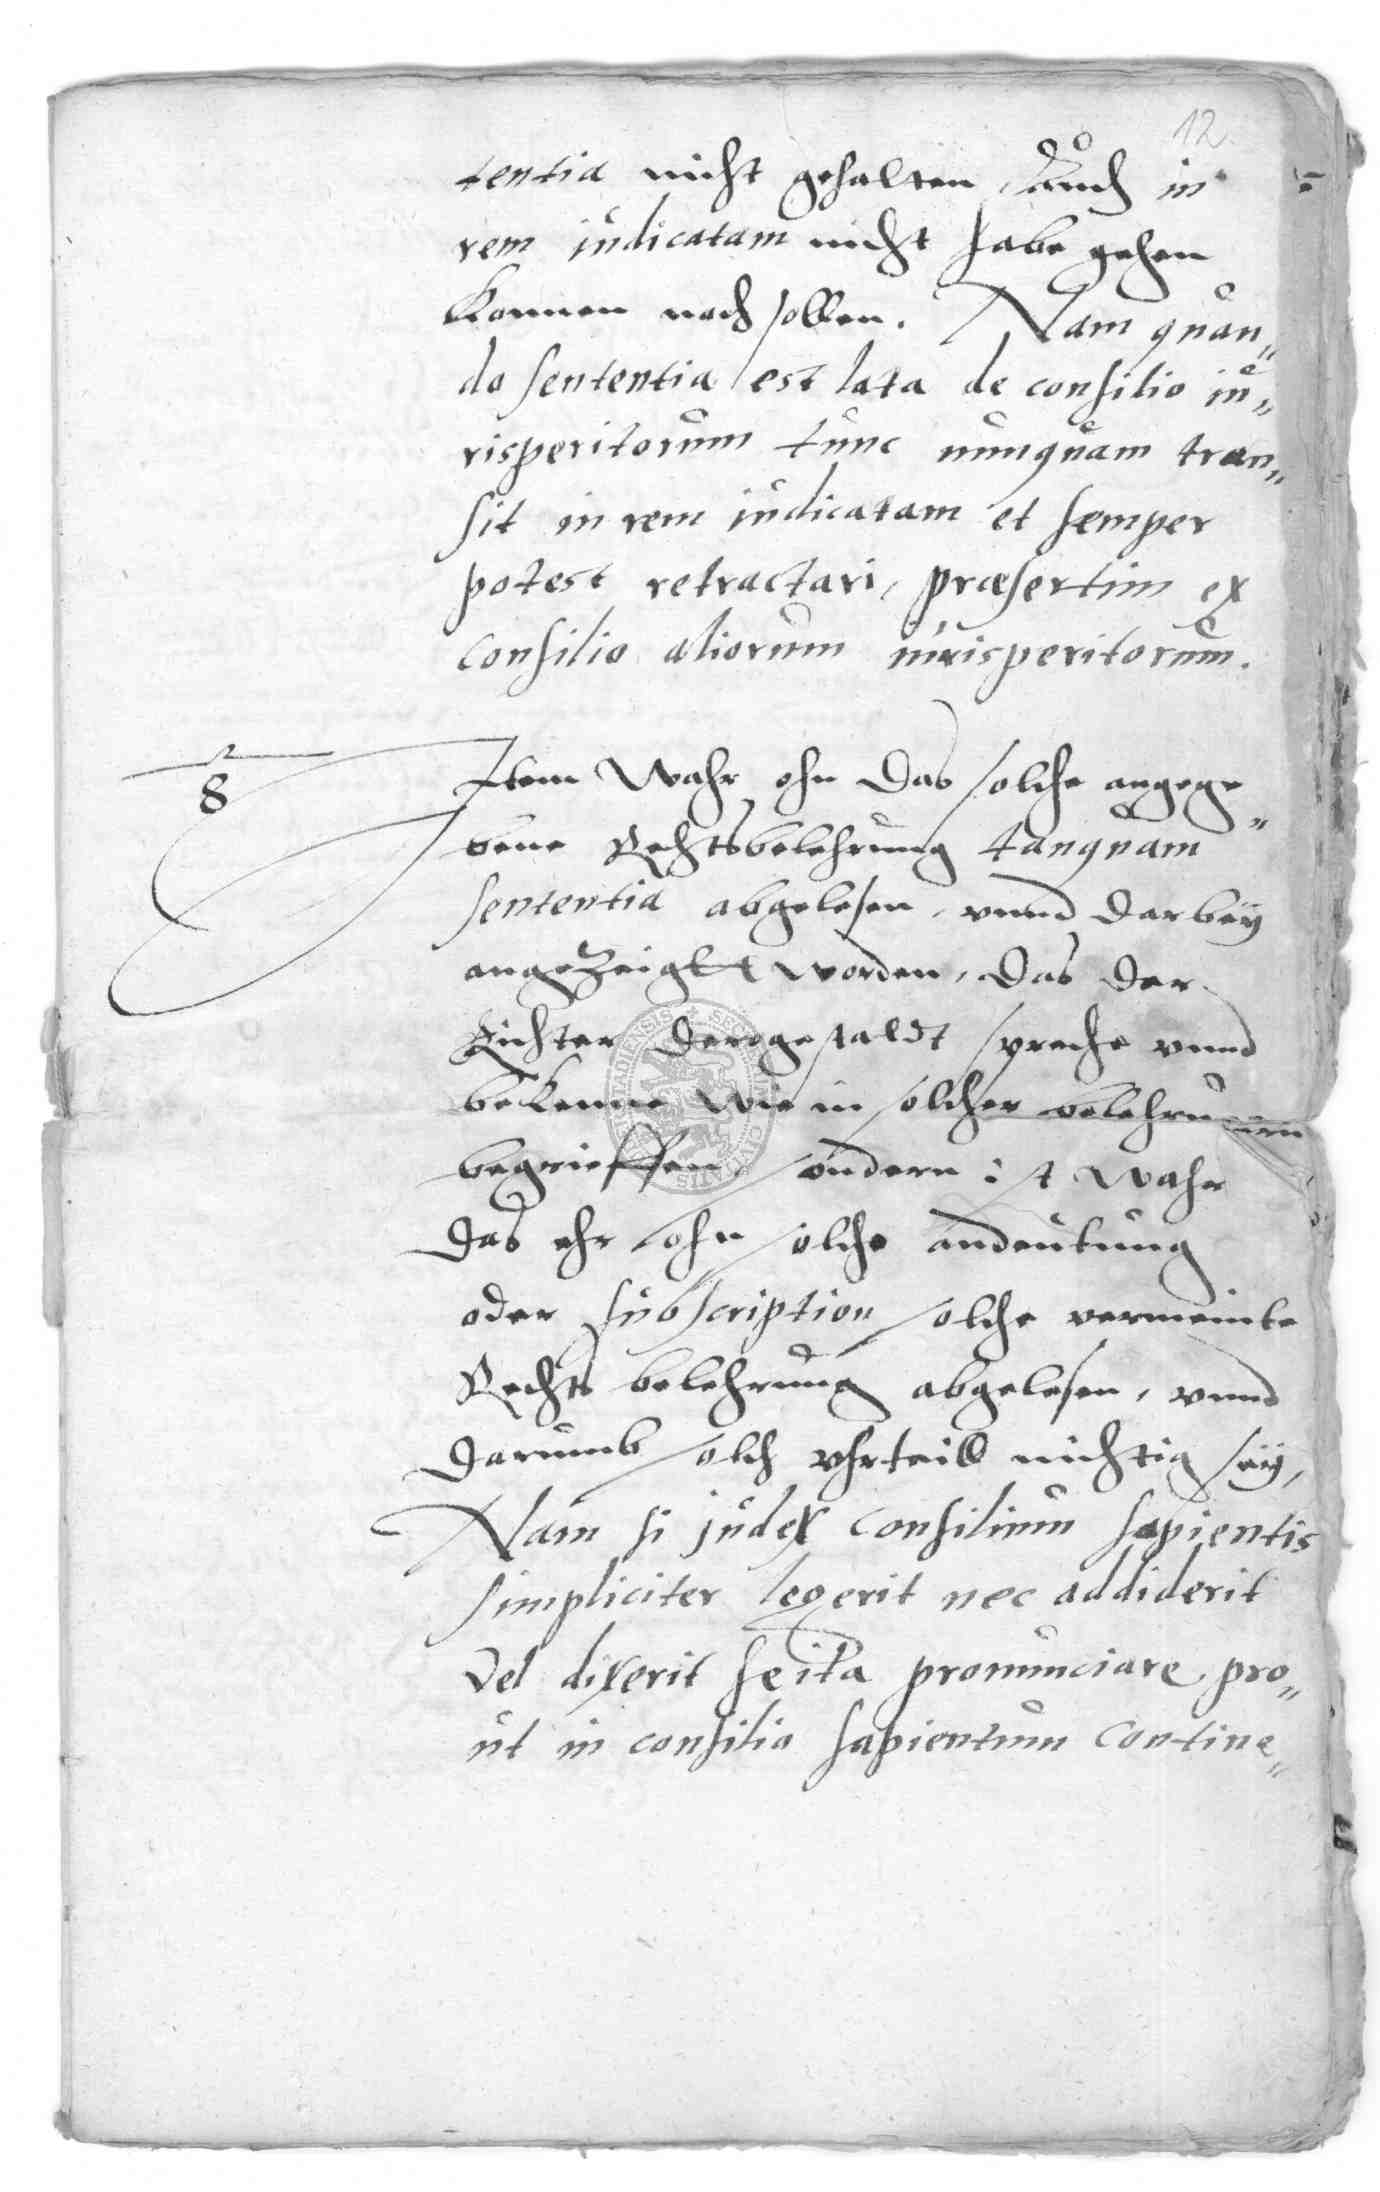 12
tentia nicht gehalten, auch in
rem iudicatam nicht habe gehen
konnen noch sollen. Nam quan„
do sententia est lata de consilio iu„
risperitorum tunc nunquam tran„
sit in rem iudicatam et semper
potest retractari, præsertim ex
consilio aliorum iurisperitorum.
8
Item wahr ohn das solche angege„
bene Rechtsbelehrung tanquam
sententia abgelesen, vnnd darbeÿ
angezeigtt worden, das der
Richter derogestaldt spreche vnnd
bekenne wie in solcher belehrung
begrieffen, sondern ist wahr
das ehr ohn solche andeutung
oder subscription solche vermeinte
Rechts belehrung abgelesen, vnnd
darumb solch vhrteill nichtig seÿ,
Nam si judex consilium sapientis
simpliciter legerit nec addiderit
vel dixerit se ita pronunciare, pro„
ut in consilio sapientum contine„